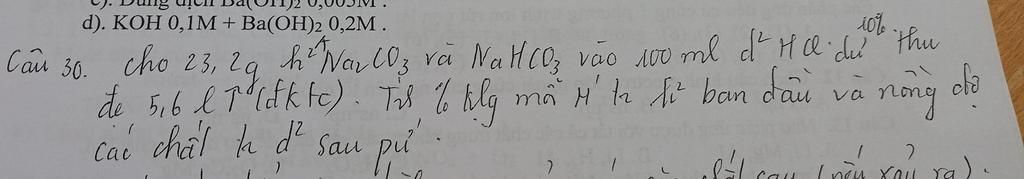 c). Dung dịch Ba(OH)₂ 0,005M .
d). KOH 0,1M + Ba(OH)₂ 0,2M .
Câu 30. cho 23,2g h² Na₂CO₃ và NaHCO₃ vào 100 ml d² HCl dư 10% thu
đc 5,6 l ↑ (đktc). Tính % klg mỗi M' tr h² ban đầu và nồng độ
các chất tr d² sau pứ.